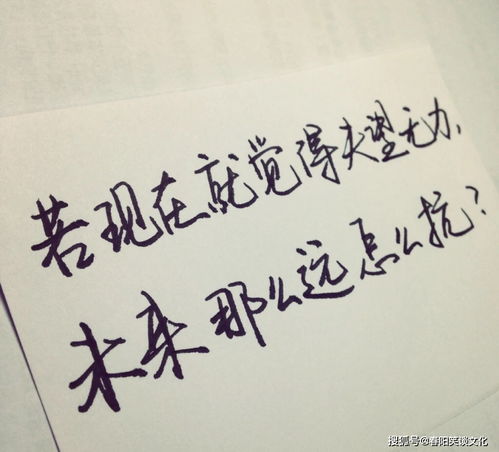 若现在就觉得失望无力，
未来那么远怎么抗？
搜狐号@春阳笑谈文化